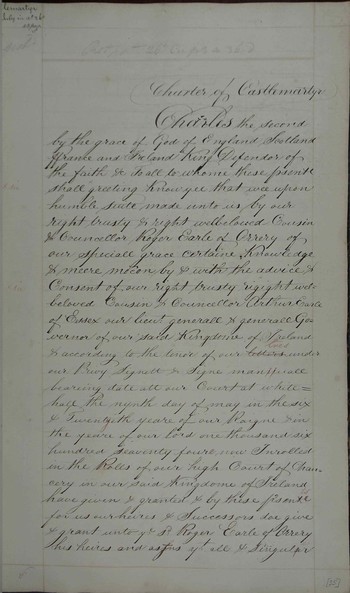 Charter of Castlemartyr
Charles the second
by the grace of God of England Scotland
ffrance and Ireland King Defendor of
the faith & to all to whome these psents
shall greeting Know yee that wee upon
humble suite made unto us by our
right trusty & right welbeloved Cousin
& Councellor Roger Earle of Orrery of
our speciall grace certaine Knowledge
& meere motion by & with the advice &
Consent of our right trusty & right wel-
beloved Cousin & Councellor Arthur Earle
of Essex our lieut generall & generall Go
vernor of our said Kingdome of Ireland
& according to the tenor of our letters under
our Privy Signett & Signe manuall
bearing date att our Court at white =
hall the nynth day of may in the six
& Twentyeth yeare of our Raigne & in
the yeare of our Lord one thousand six
hundred seaventy foure now Inrolled
in the Rolls of our high Court of Chan
cery in our said Kingdome of Ireland
have given & granted & by these psents
for us our heires & Successors doe give
& grant unto ye sd Roger Earle of Orrery
his heires and assns yt all & Singular